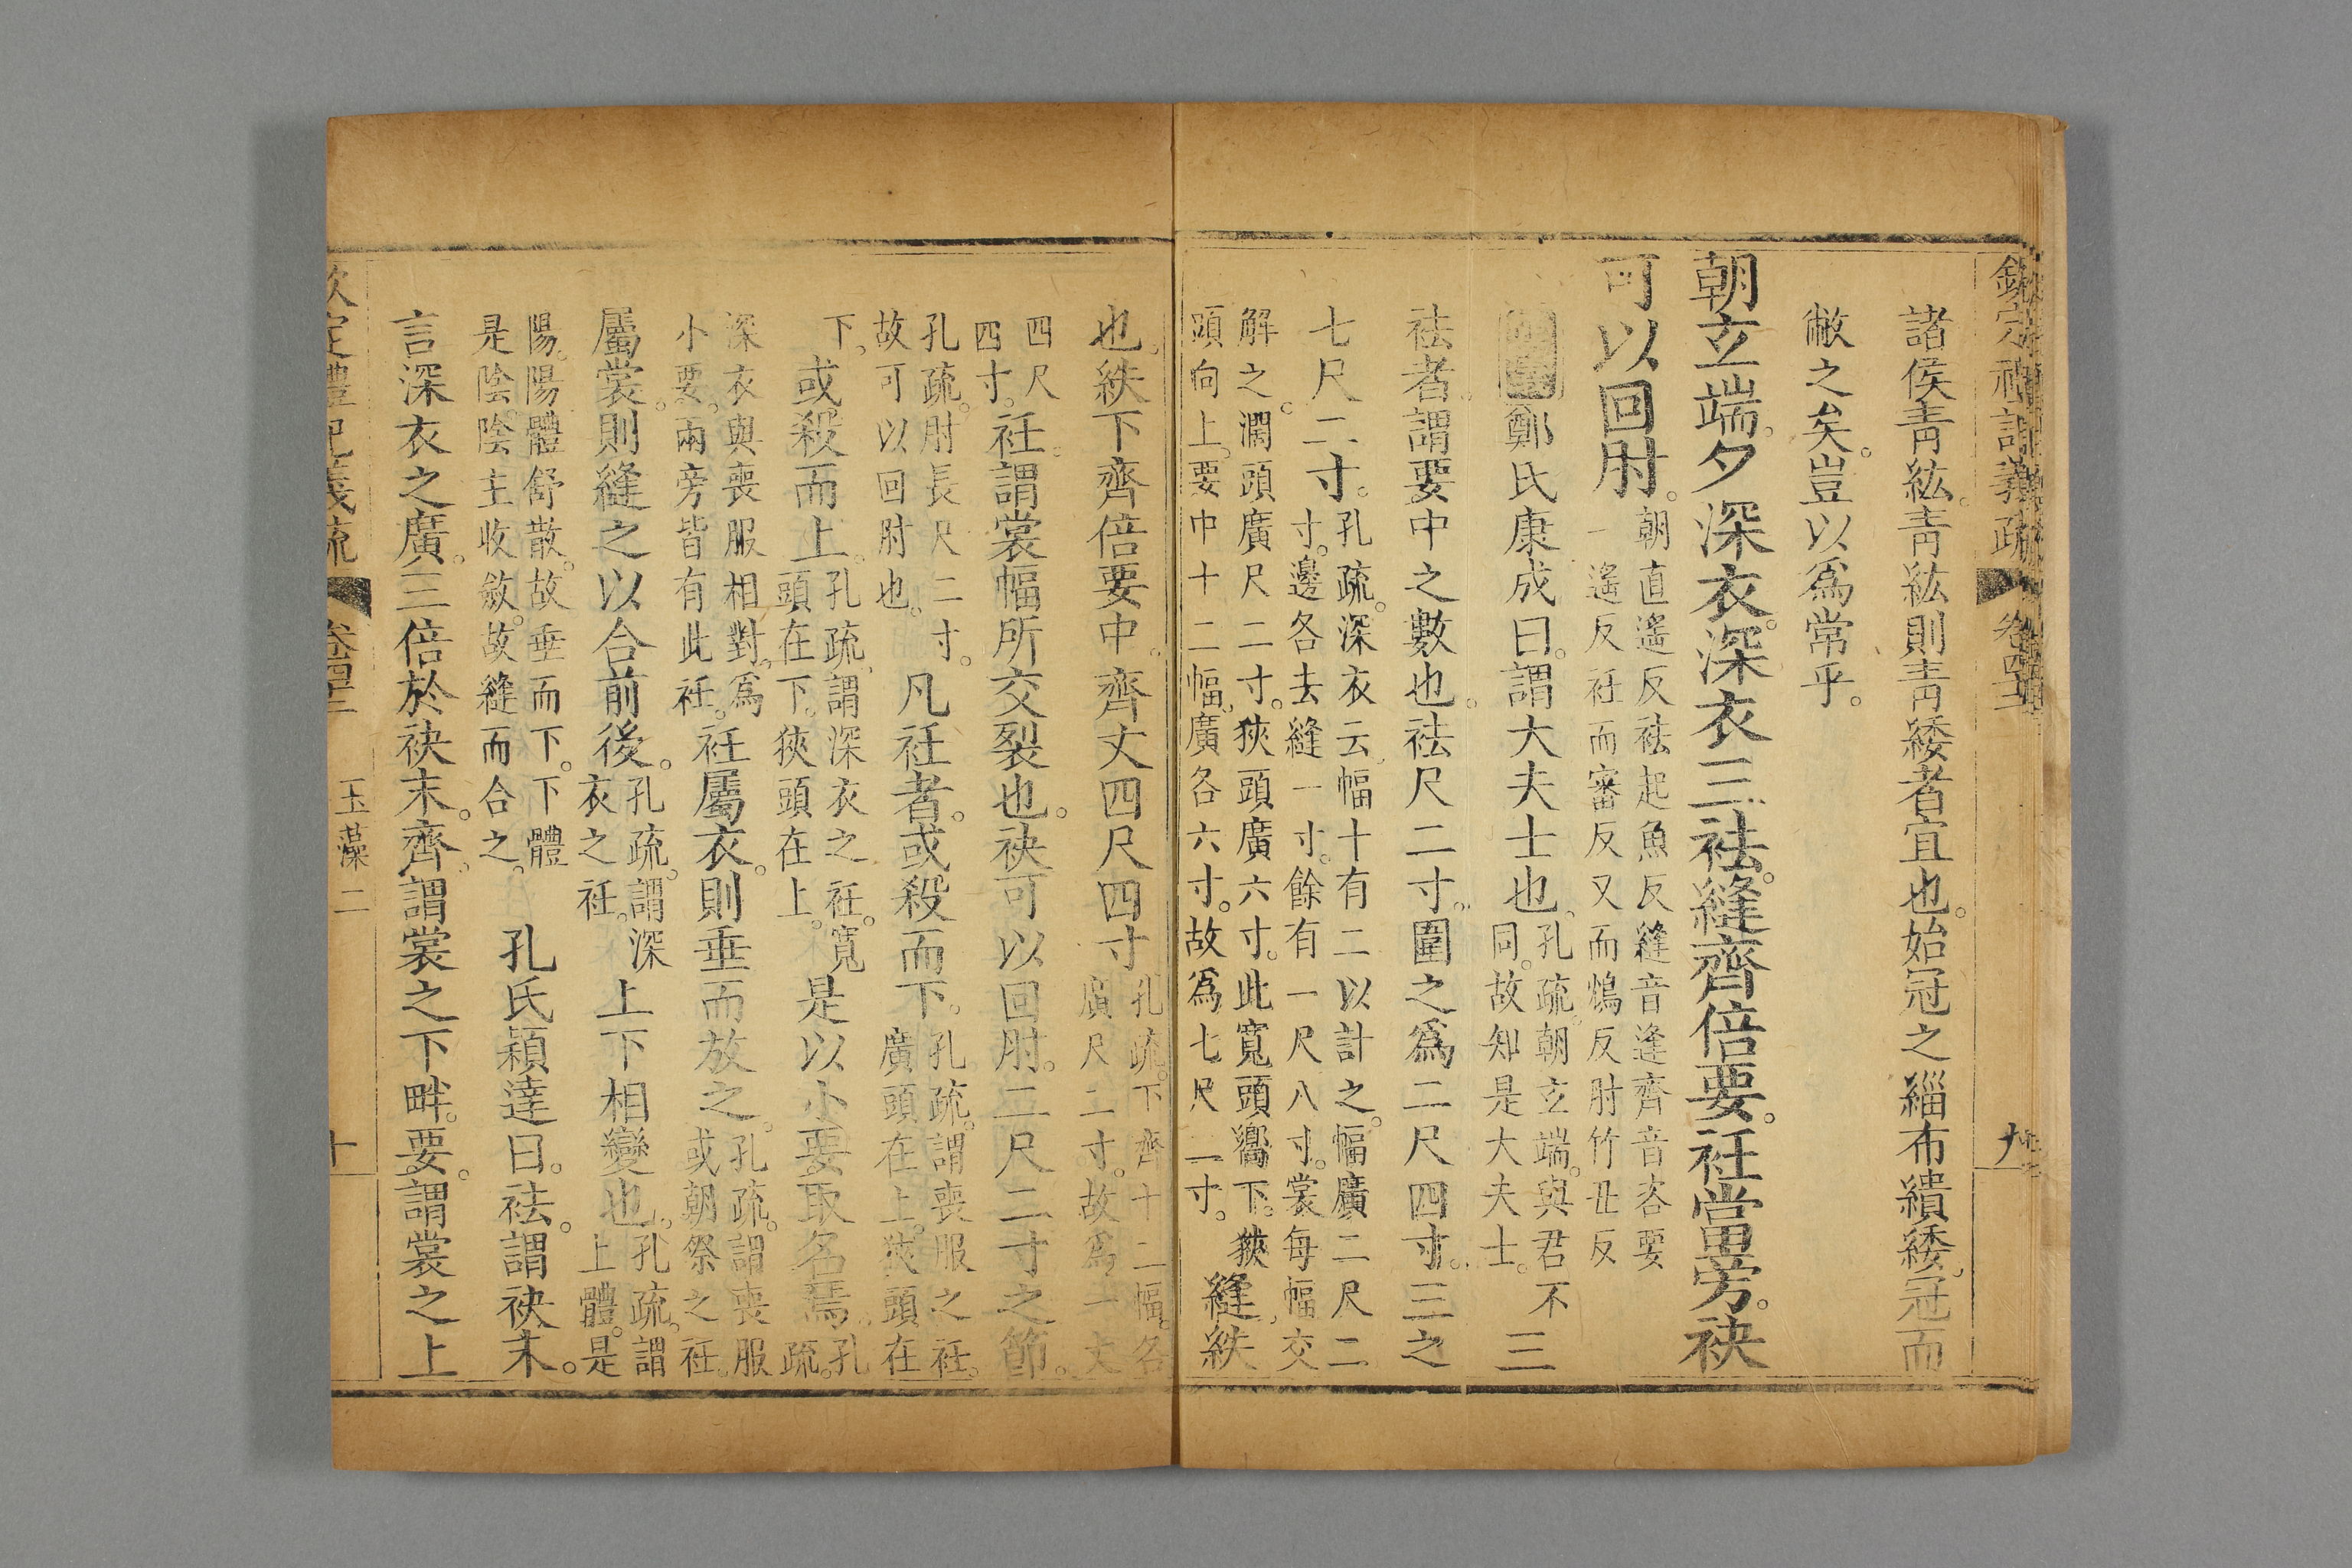 欽定禮記義疏 卷四十二 九
諸侯靑紘。靑紘則靑緌者宜也。始冠之緇布繢緌。冠而
敝之矣。豈以爲常乎。
朝玄端。夕深衣。深衣三袪。縫齊倍要。衽當旁。袂
可以回肘。朝直遙反袪起魚反縫音逢齊音咨要
一遙反衽而審反又而鴆反肘竹丑反
鄭氏康成曰。謂大夫士也。孔疏。朝玄端。與君不
同。故知是大夫士。三
袪者。謂要中之數也。袪尺二寸。圍之爲二尺四寸。三之
七尺二寸。孔疏。深衣云。幅十有二以計之。幅廣二尺二
寸。邊各去縫一寸。餘有一尺八寸。裳每幅交
解之。濶頭廣尺二寸。狹頭廣六寸。此寬頭嚮下。狹
頭向上。要中十二幅。廣各六寸。故爲七尺二寸。縫。紩
也。紩下齊倍要中。齊丈四尺四寸孔疏。下齊十二幅。各
廣尺二寸。故爲一丈
四尺
四寸。衽。謂裳幅所交裂也。袂可以回肘。二尺二寸之節。
孔疏。肘長尺二寸。
故可以回肘也。凡衽者。或殺而下。孔疏。謂喪服之衽。
廣頭在上。狹頭在
下。或殺而上。孔疏。謂深衣之衽。寬
頭在下。狹頭在上。是以小要取名焉。孔
疏。
深衣與喪服相對。爲
小要。兩旁皆有此衽。衽屬衣。則垂而放之。孔疏。謂喪服
或朝祭之衽。
屬裳。則縫之以合前後。孔疏。謂深
衣之衽。上下相變也。孔疏。謂
上體。是
陽。陽體舒散。故垂而下。下體
是陰。陰主收斂。故縫而合之。孔氏穎達曰。袪。謂袂末。
言深衣之廣。三倍於袂末。齊。謂裳之下畔。要。謂裳之上
欽定禮記義疏 卷四十二 玉藻二 十